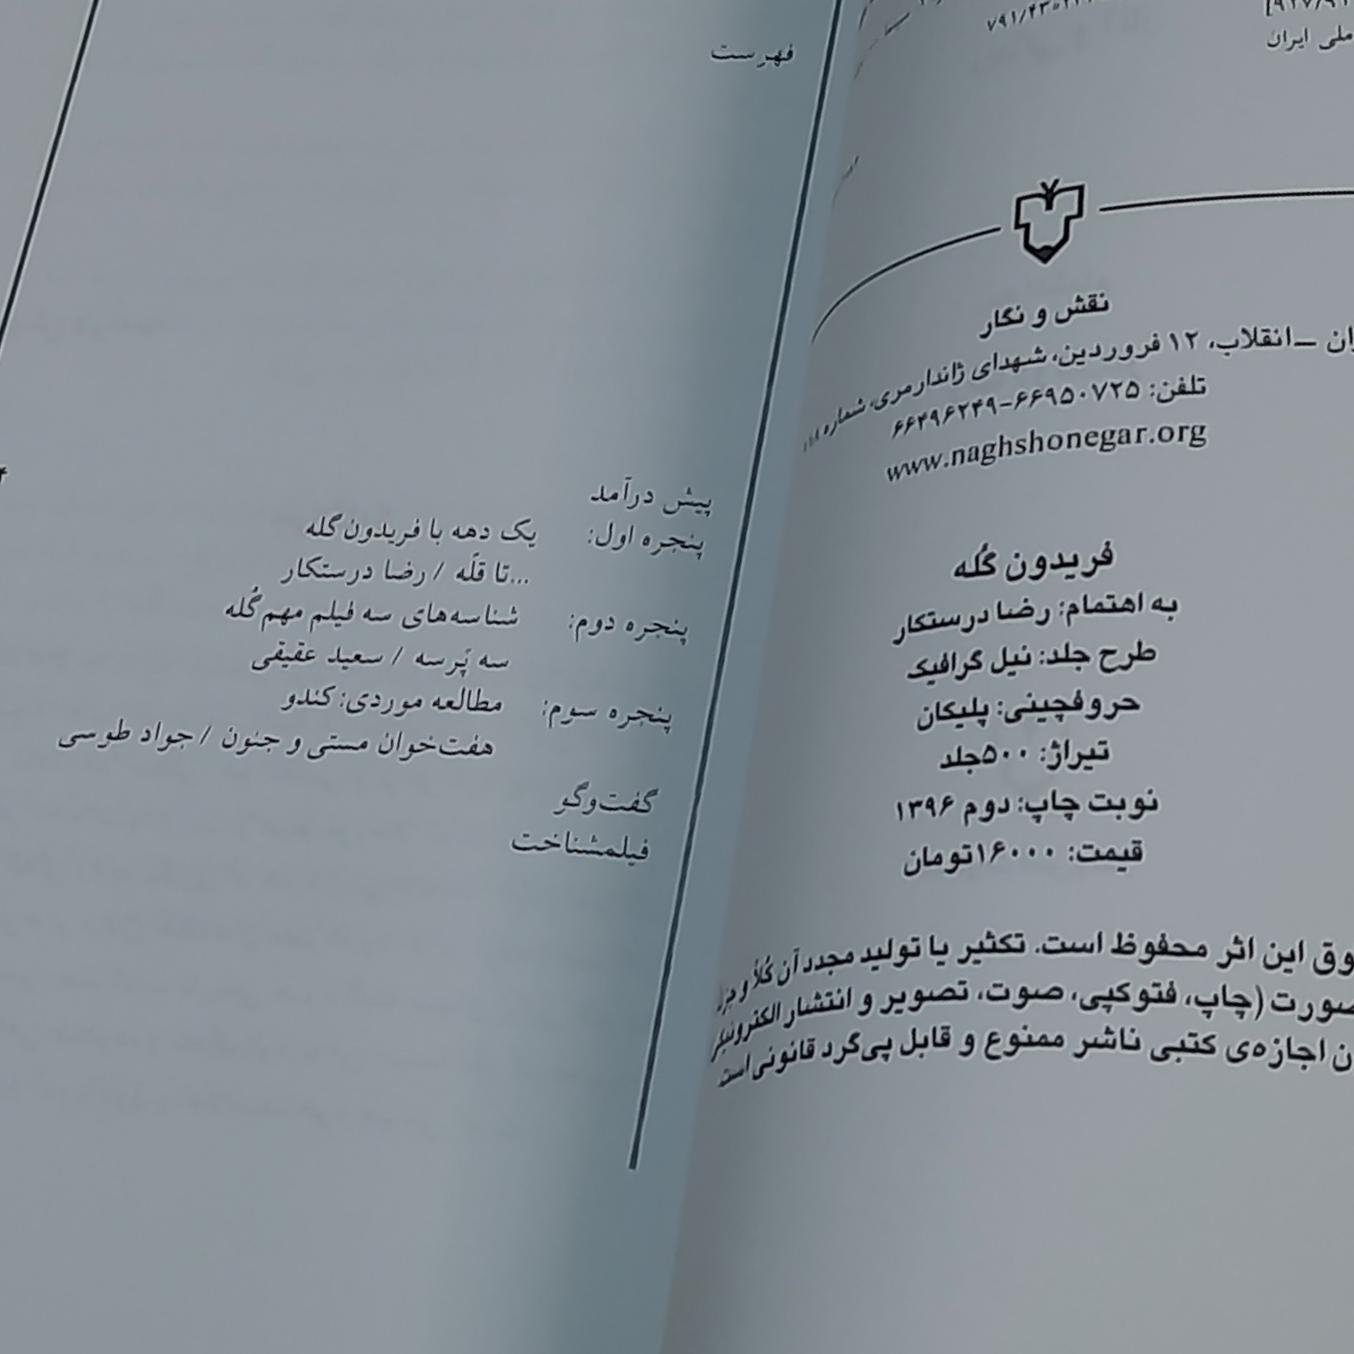 ملی ایران
نقش و نگار
ـ انقلاب، ۱۲ فروردین، شهدای ژاندارمری، شماره
تلفن: ۶۶۹۵۰۷۲۵-۶۶۴۹۶۲۴۹
www.naghshonegar.org
فریدون گُله
به اهتمام: رضا درستکار
طرح جلد: نیل گرافیک
حروفچینی: پلیکان
تیراژ: ۵۰۰جلد
نوبت چاپ: دوم ۱۳۹۶
قیمت: ۱۶۰۰۰تومان
این اثر محفوظ است. تکثیر یا تولید مجدد آن کُلاً و
(چاپ، فتوکپی، صوت، تصویر و انتشار الکترونیکی
اجازه‌ی کتبی ناشر ممنوع و قابل پی‌گرد قانونی است.
فهرست
پیش درآمد
پنجره اول: یک دهه با فریدون گله
...تا قلّه / رضا درستکار
پنجره دوم: شناسه‌های سه فیلم مهم گُله
سه پَرسه / سعید عقیقی
پنجره سوم: مطالعه موردی: کندو
هفت‌خوان مستی و جنون / جواد طوسی
گفت‌وگو
فیلمشناخت